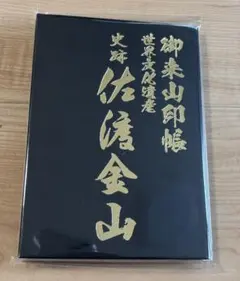 御来山印帳
世界文化遺産
史跡
佐渡金山